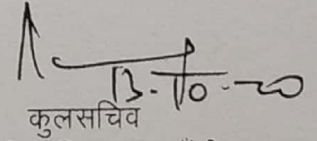 13-10-20
कुलसचिव